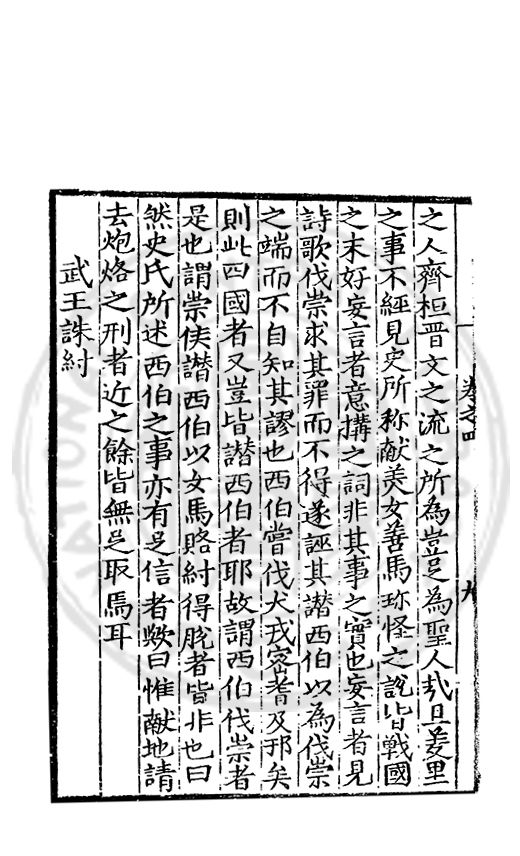 卷之四
九
之人齊桓晋文之流之所為豈足為聖人哉且羑里
之事不經見史所称献美女善馬珎怪之說皆戰國
之末好妄言者意搆之詞非其事之實也妄言者見
詩歌伐崇求其罪而不得遂誣其譖西伯以為伐崇
之端而不自知其謬也西伯嘗伐犬戎密耆及邘矣
則此四國者又豈皆譖西伯者耶故謂西伯伐崇者
是也謂崇侯譖西伯以女馬賂紂得脫者皆非也曰
然史氏所述西伯之事亦有足信者歟曰惟献地請
去炮烙之刑者近之餘皆無足取焉耳
武王誅紂